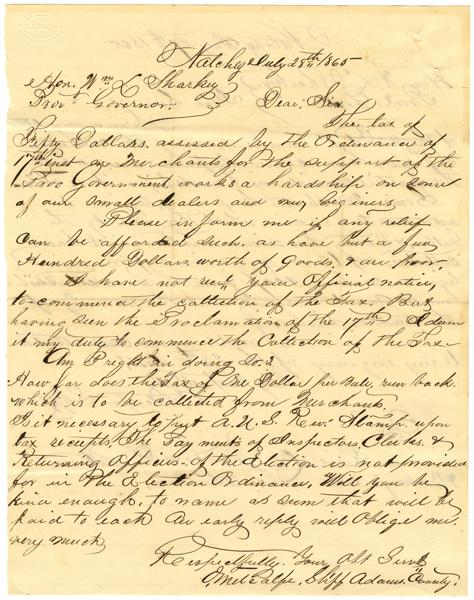 Natchez July 28th 1865
Hon. Wm L Sharkey
Prov. Governor. Dear, Sir
The tax of
Fifty Dollars. assessed by the Ordinance of
17th inst on Merchants for the support of the
Prov Government, works a hardship on some
of our small dealers and new beginers,
Please inform me if any relief
can be afforded such, as have but a few
Hundred Dollars, worth of Goods, & are poor.
I have not recd your Official notice,
to commence the collection of the Tax. But
having seen the Proclamation of the 17th I deem
it my duty to commence the Collection of the Tax
Am I right in doing So.?
How far does the Tax of One Dollar per Bale, run back
which is to be collected from Merchants.
Is it necessary to put A. U. S. Rev. Stamp upon
tax receipts. The Payments of Inspectors, Clerks. &
Returning Officers. of the Election is not provided
for in The Election Ordinance, Will you be
kind enough, to name as sum that will be
paid to each An early reply will Oblige me
very much
Respectfully. Your Obt Servt
O Metcalfe, Shff Adams. County.